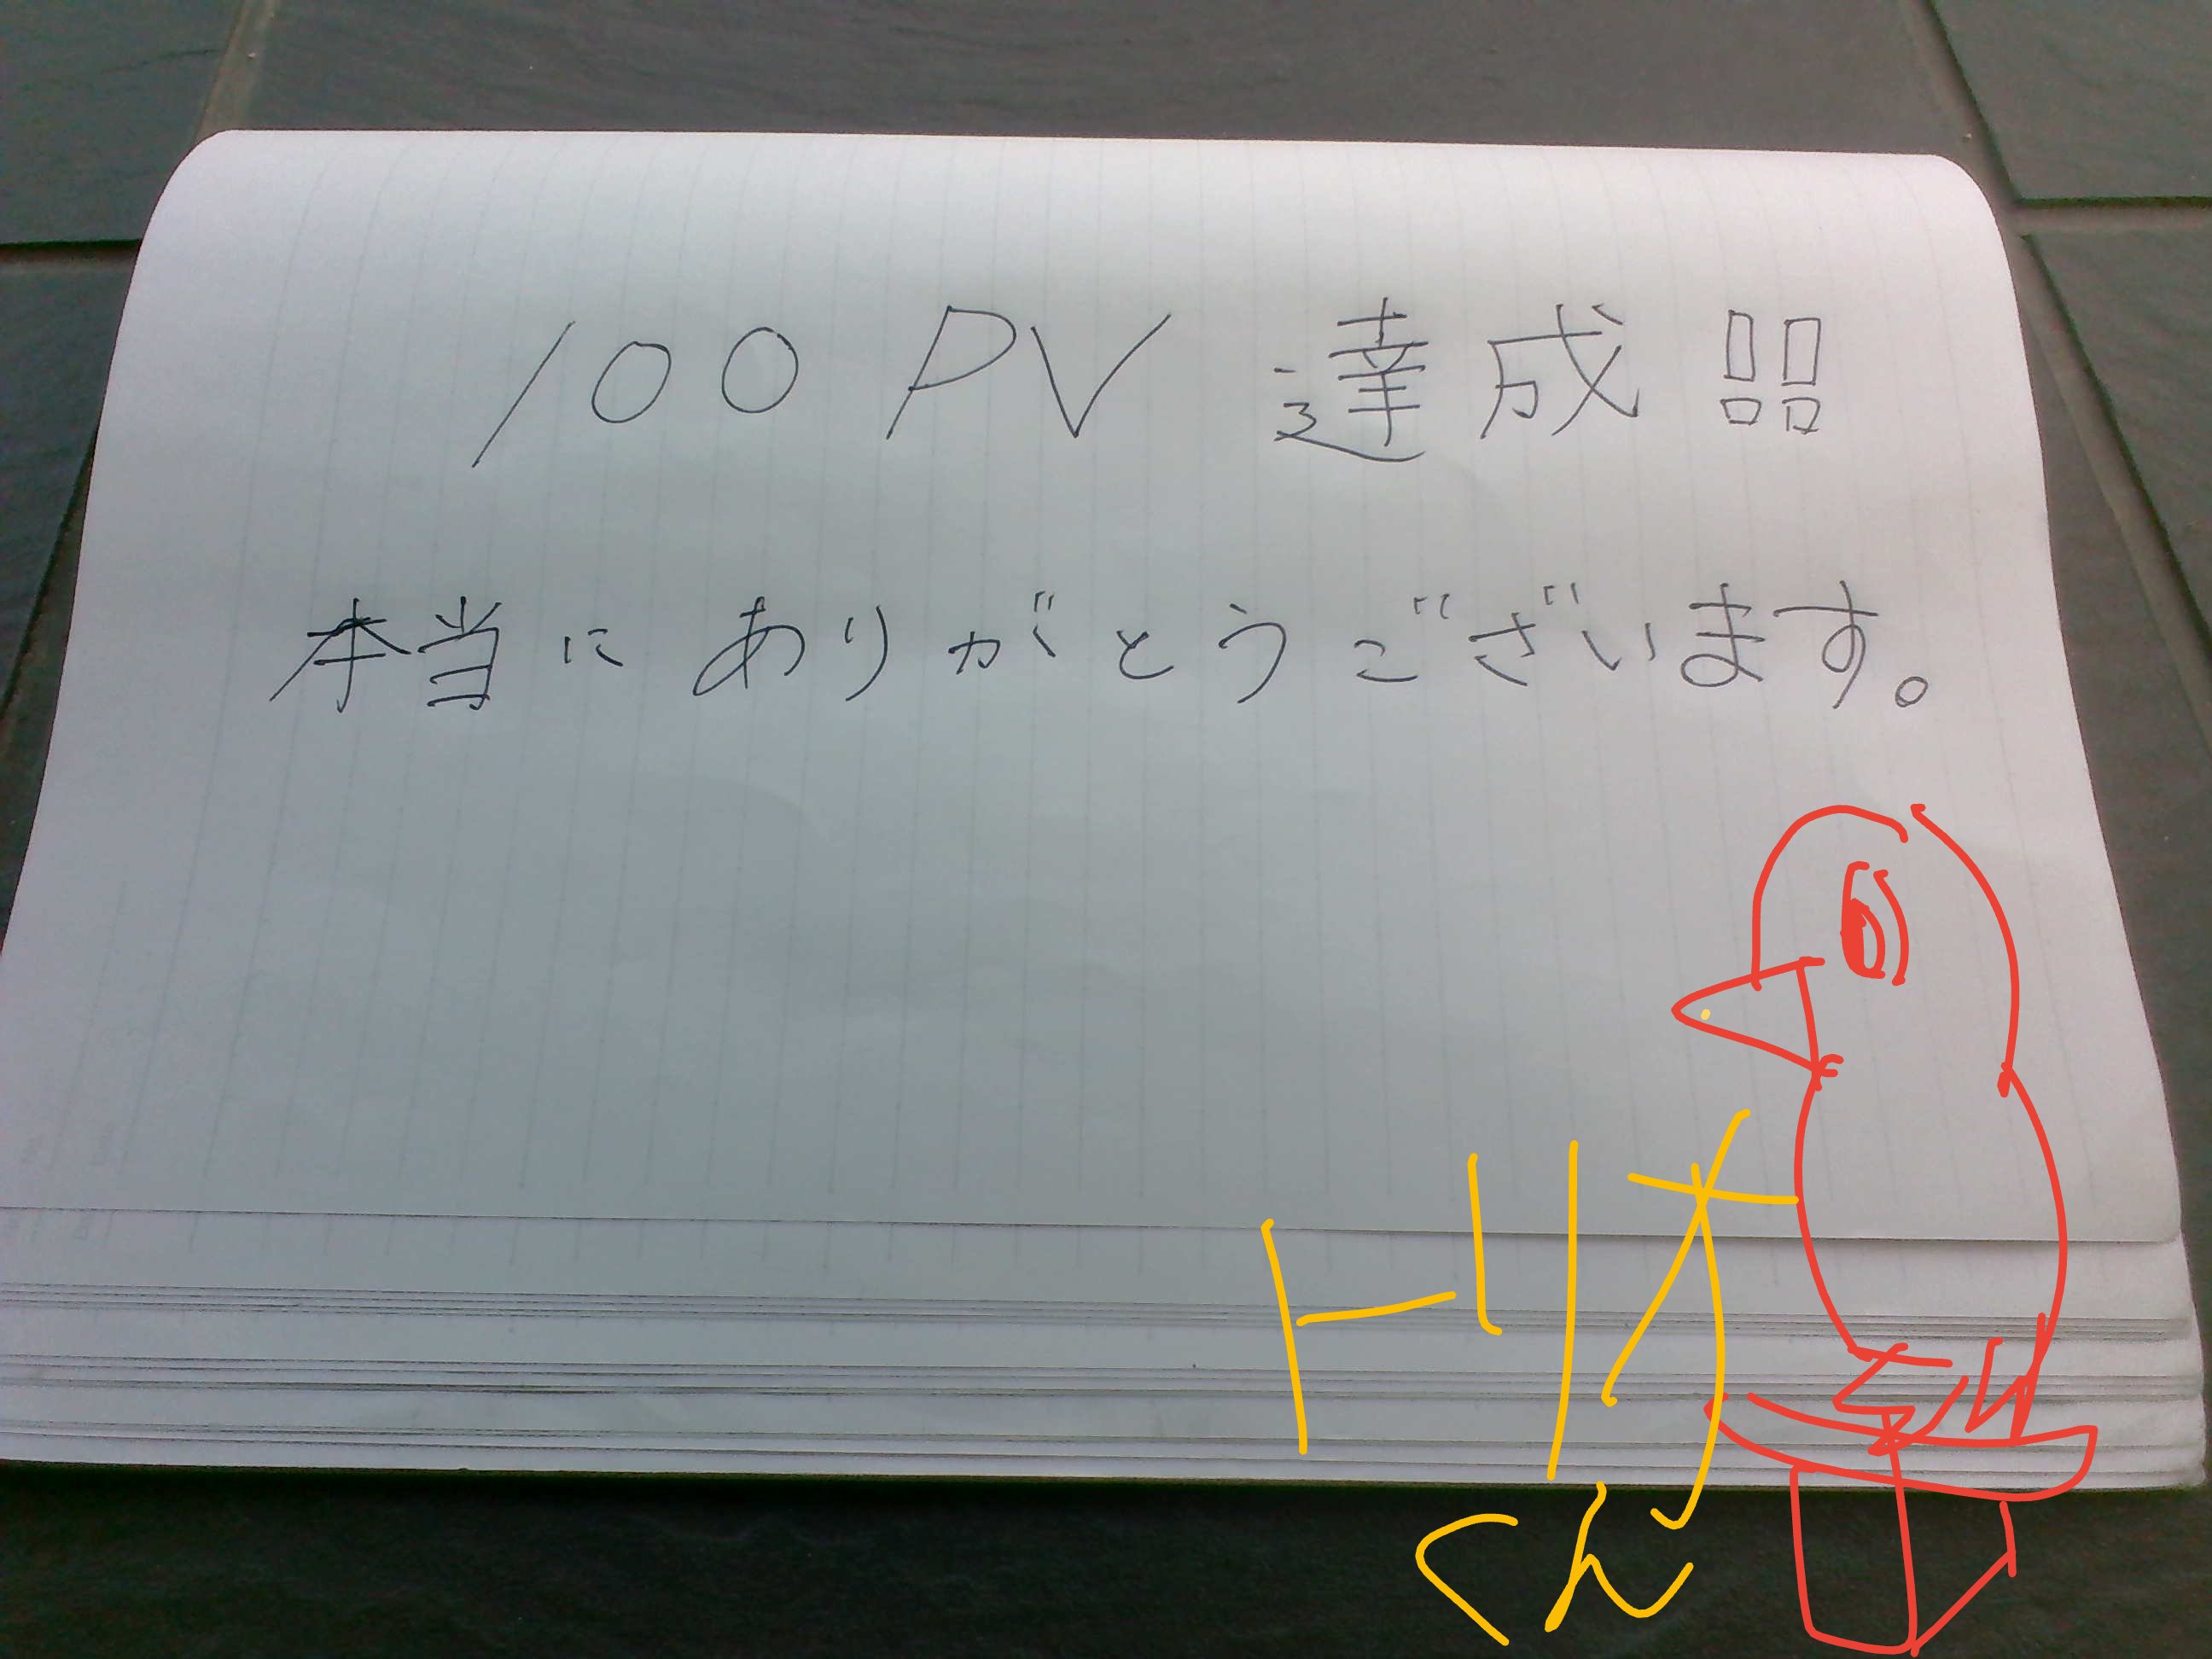 100 PV 達成品
本当にありがとうございます。
トリオ
くん